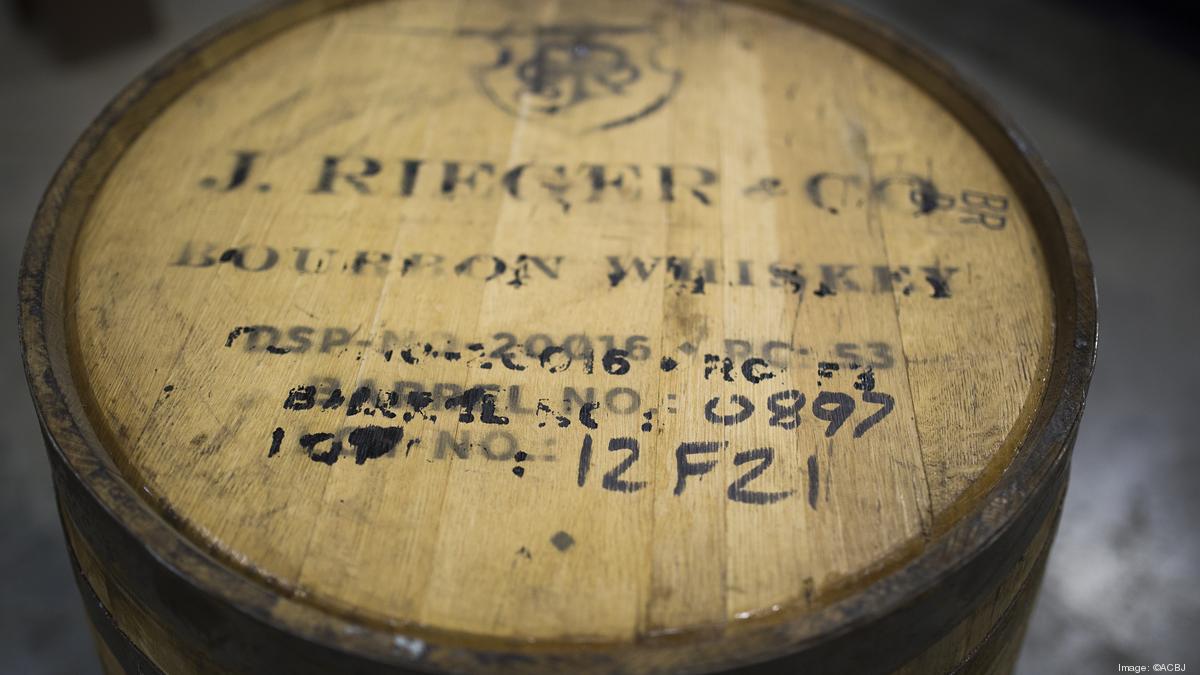 J. RIEGER & CO.
BR
BOURBON WHISKEY
DSP-NO.-20016 • RC: 53
BARREL NO.: 0897
LOT NO.: 12F21
Image: ©ACBJ